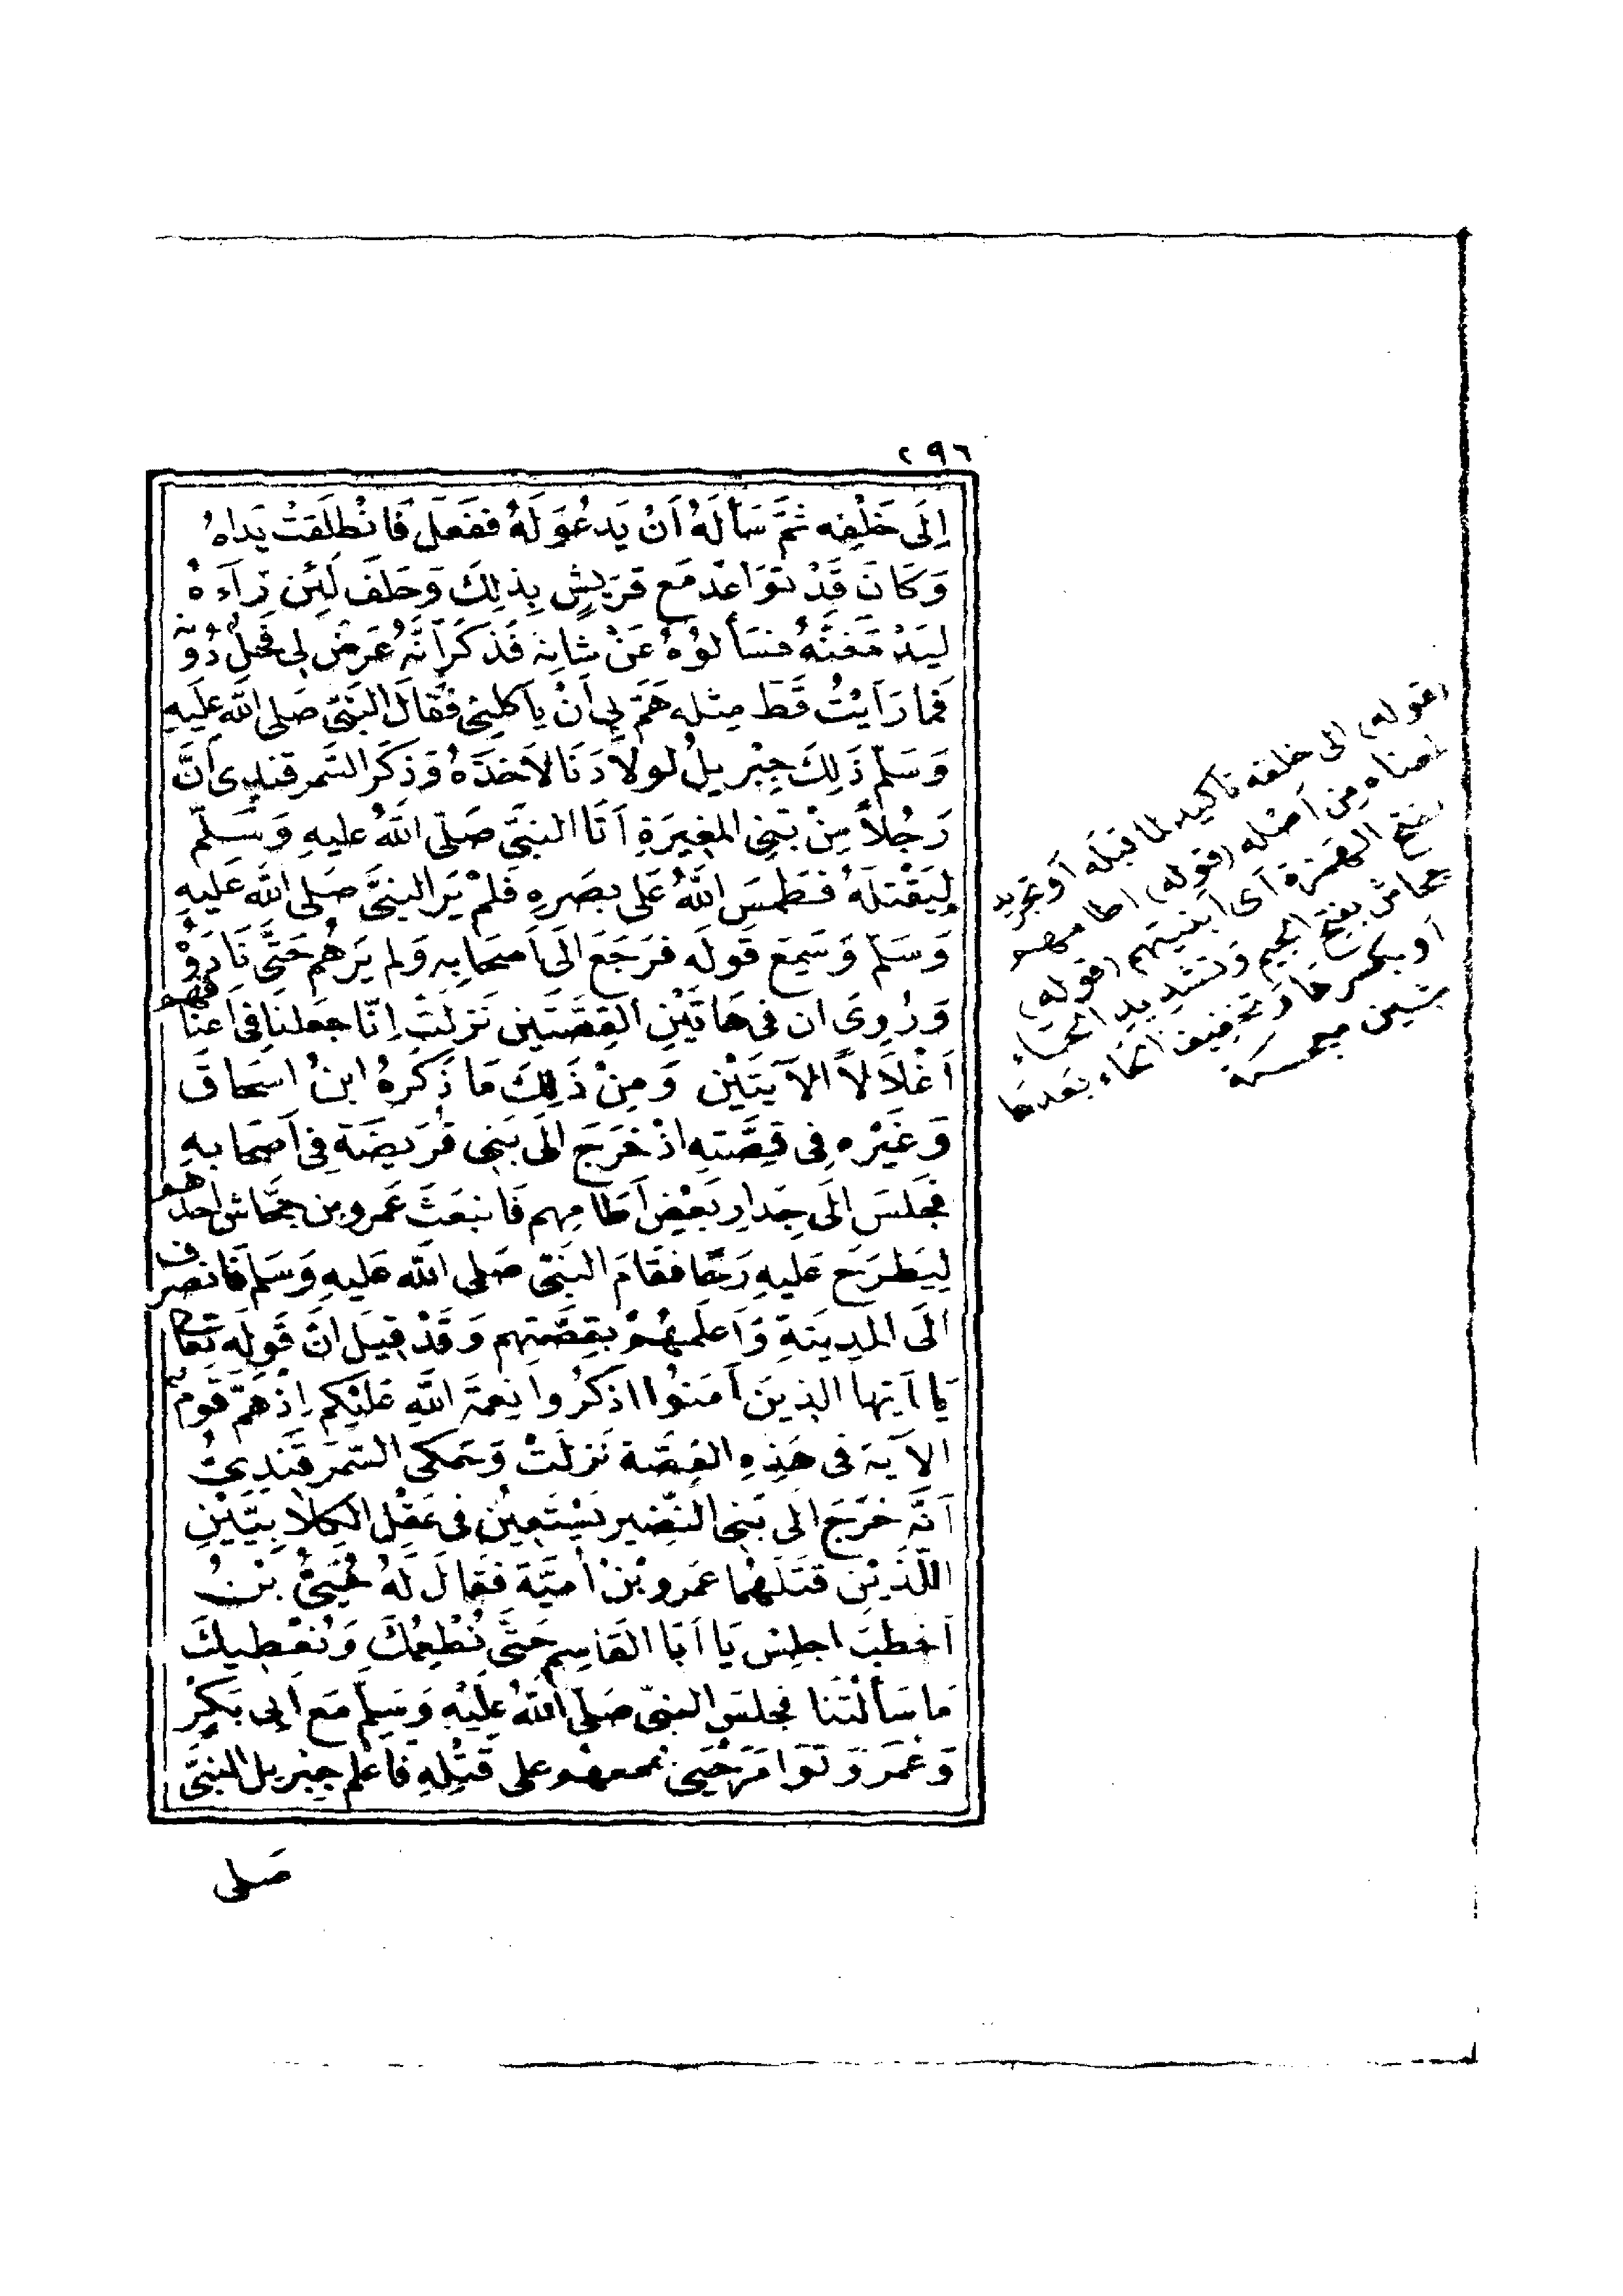 ٢٩٦
اِلَى خَلْفِه ثمَّ سَأَلَهُ اَنْ يَدعُوَ لَهُ ففَعَلَ فَانْطلَقَتْ يَداهُ
وَكَانَ قَدْ تَوَاعَدَ مَع قرَيشٍ بِذلِكَ وَحلَفَ لَئِن رَآهُ
ليَدْمَغنَّهُ فسَألوُهُ عَنْ شانِه فَذكَرَ اَنَّهُ عُرَضَ لِى فَحْلٌ دُونهُ
فَما رَاَيْتُ قَط مِثله هَمَّ بِى اَنْ يأكلنِى فقَالَ النَّبىُّ صَلى اللهُ عَلَيهِ
وَسَلّمَ ذَلِكَ جِبْريلُ لَو دَنَا لاَخَذَهُ وَذكَرَ السَّمرقندِى اَنَّ
رَجُلاً مِنْ بَنِى المغِيرَةِ اَتَا النبىَّ صَلّى اللهُ عليهِ وَسَلّمَ
لِيَقْتلَهُ فطَمسَ اللهُ عَلى بصَرِهِ فلمْ يَرَ النبىَّ صَلى الله عَليهِ
وَسَلّمَ وَسَمِعَ قَولَه فرَجَعَ الَى اَصحَابِه وَلم يَرَهُم حَتَّى نَادَوْهُ
وَرُوِىَ ان فى هَاتَيْنِ القِصَّتَينِ نَزلَتْ اِنّا جعَلنَا فى اَعنَاقهم
اَغْلاَلاً الآيَتَيْنِ وَمِنْ ذَلِكَ مَا ذَكَرَهُ ابنُ اسحَاقَ
وَغَيْرُه فِى قِصَّتِهِ اذْ خَرَجَ الَى بَنِى قُرَيضَةَ فِى اَصحَابهِ
فجَلسَ الَى جِدَارِ بَعْضِ اَطَامِهم فَانبَعَثَ عَمرو بن جحَّاش احدهم
لِيَطرَحَ عَليهِ رَحًا فقَامَ النبىّ صَلى الله عَليهِ وَسَلم فَانصرف
الَى المدِينَةِ وَاَعلَمهُمْ بقِصَّتِهم وَقَدْ قِيلَ انَّ قَولَه تَعالى
يَا اَيّها الذِينَ آمَنوُا اذكُروا نِعمَةَ اللهِ عَليْكُم اِذْ هَمَّ قَومٌ
الآيَة فى هَذِهِ القِصَّة نَزلَتْ وَحَكى السَّمرقَندِىُّ
اَنَّه خَرَجَ الَى بَنِى النَّضِيرِ يَسْتَعِينُ فى عَقْلِ الكِلَابِيَّيْنِ
اللّذَيْنِ قتَلَهُمَا عَمرو بْنُ اُميَّة فقَالَ لَهُ حُيَىُّ بْنُ
اَخطَبَ اجلِسْ يَا اَبَا القَاسِمِ حَتَّى نُطْعِمُكَ وَنُعْطِيكَ
مَا سَألْتَنَا فجَلسَ النبىّ صَلى اللهُ عَليْهِ وَسَلّمَ مَع اَبِى بَكِرْ
وَعُمَرَ وَتَوَامَرَ حُيَىّ معهم على قَتْلِهِ فاعلم جبْريل النبىَّ
صَلى
(قوله) الى خلفه تاكيد لما قبله اَو تجريد
لمعناه مِن اَصْله (قوله) اطامهم
بفتح الهَمزة اَى اَبنيتهم (قوله)
جحاش بفتح الجيم وَتشديد الحَاء
اَو بكسر هَا وَتخفيف الحَاء بَعدهَا
شين معجمَة